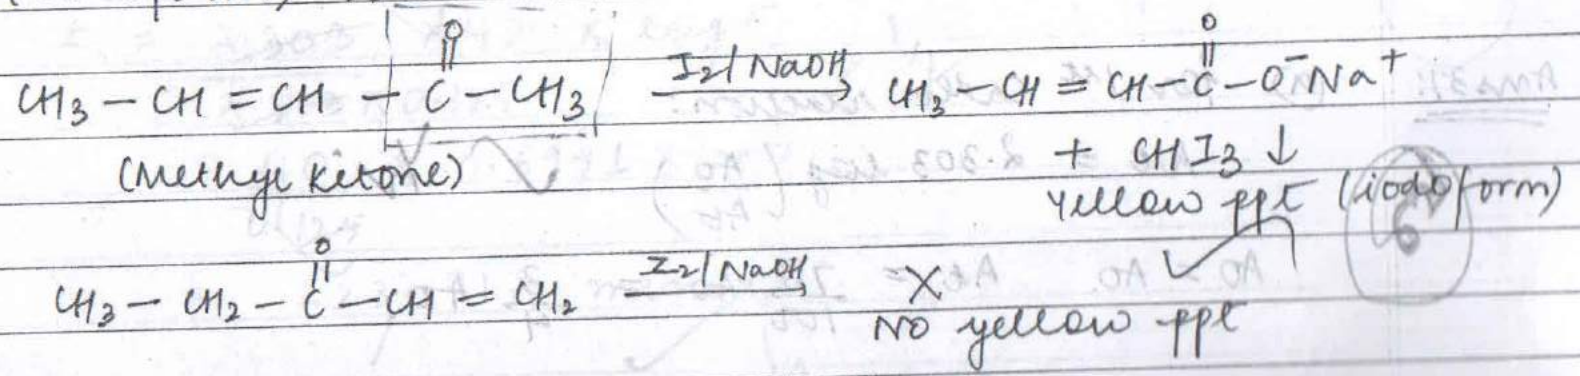 O
||
CH3 — CH = CH — C — CH3 I2/NaOH → CH3 — CH = CH — C — O⁻Na⁺
O
||
(Methyl Ketone) + CHI3 ↓
Yellow ppt (iodoform)
O
||
CH3 — CH2 — C — CH = CH2 I2/NaOH → X
NO yellow ppt